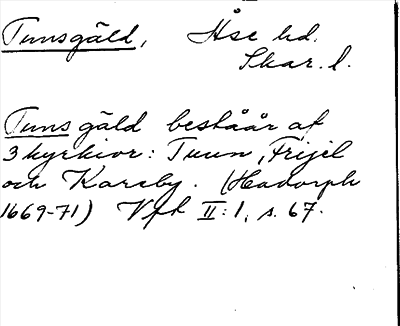 Tunsgäld, Åse hd.
Skar. l.
Tuns gäld beståår af
3 kyrkior: Tuun, Frijel
och Karaby. (Hadorph
1669-71) Vfk II:1, s. 67.